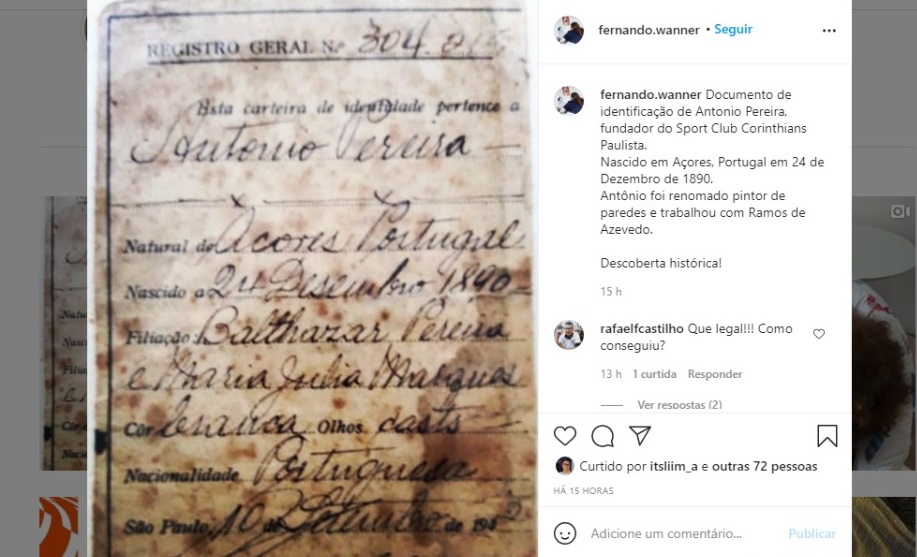 REGISTRO GERAL N.º 304.
Esta carteira de identidade pertence a
Antonio Pereira
Natural de Açores Portugal
Nascido a 24 Desembro 1890
Filiação: Balthazar Pereira
e Maria Julia Marques
Côr branca Olhos casts
Nacionalidade Portuguesa
São Paulo, 10 de Setembro de 194
fernando.wanner • Seguir
fernando.wanner Documento de
identificação de Antonio Pereira,
fundador do Sport Club Corinthians
Paulista.
Nascido em Açores, Portugal em 24 de
Dezembro de 1890.
Antônio foi renomado pintor de
paredes e trabalhou com Ramos de
Azevedo.
Descoberta histórica!
15 h
rafaelfcastilho Que legal!!! Como
conseguiu?
13 h 1 curtida Responder
Ver respostas (2)
Curtido por itsliim_a e outras 72 pessoas
HÁ 15 HORAS
Adicione um comentário... Publicar